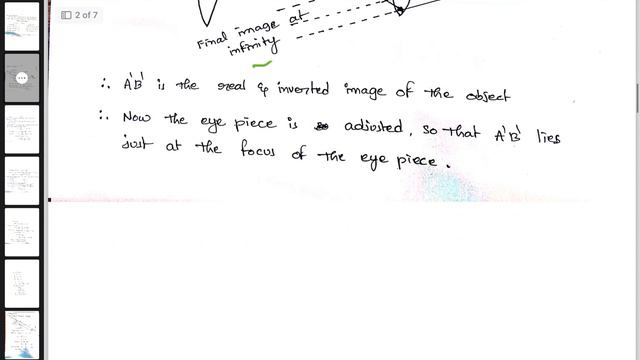 2 of 7
Final image at
infinity
∴ A'B' is the real & inverted image of the object
∴ Now the eye piece is adjusted, so that A'B' lies
just at the focus of the eye piece.